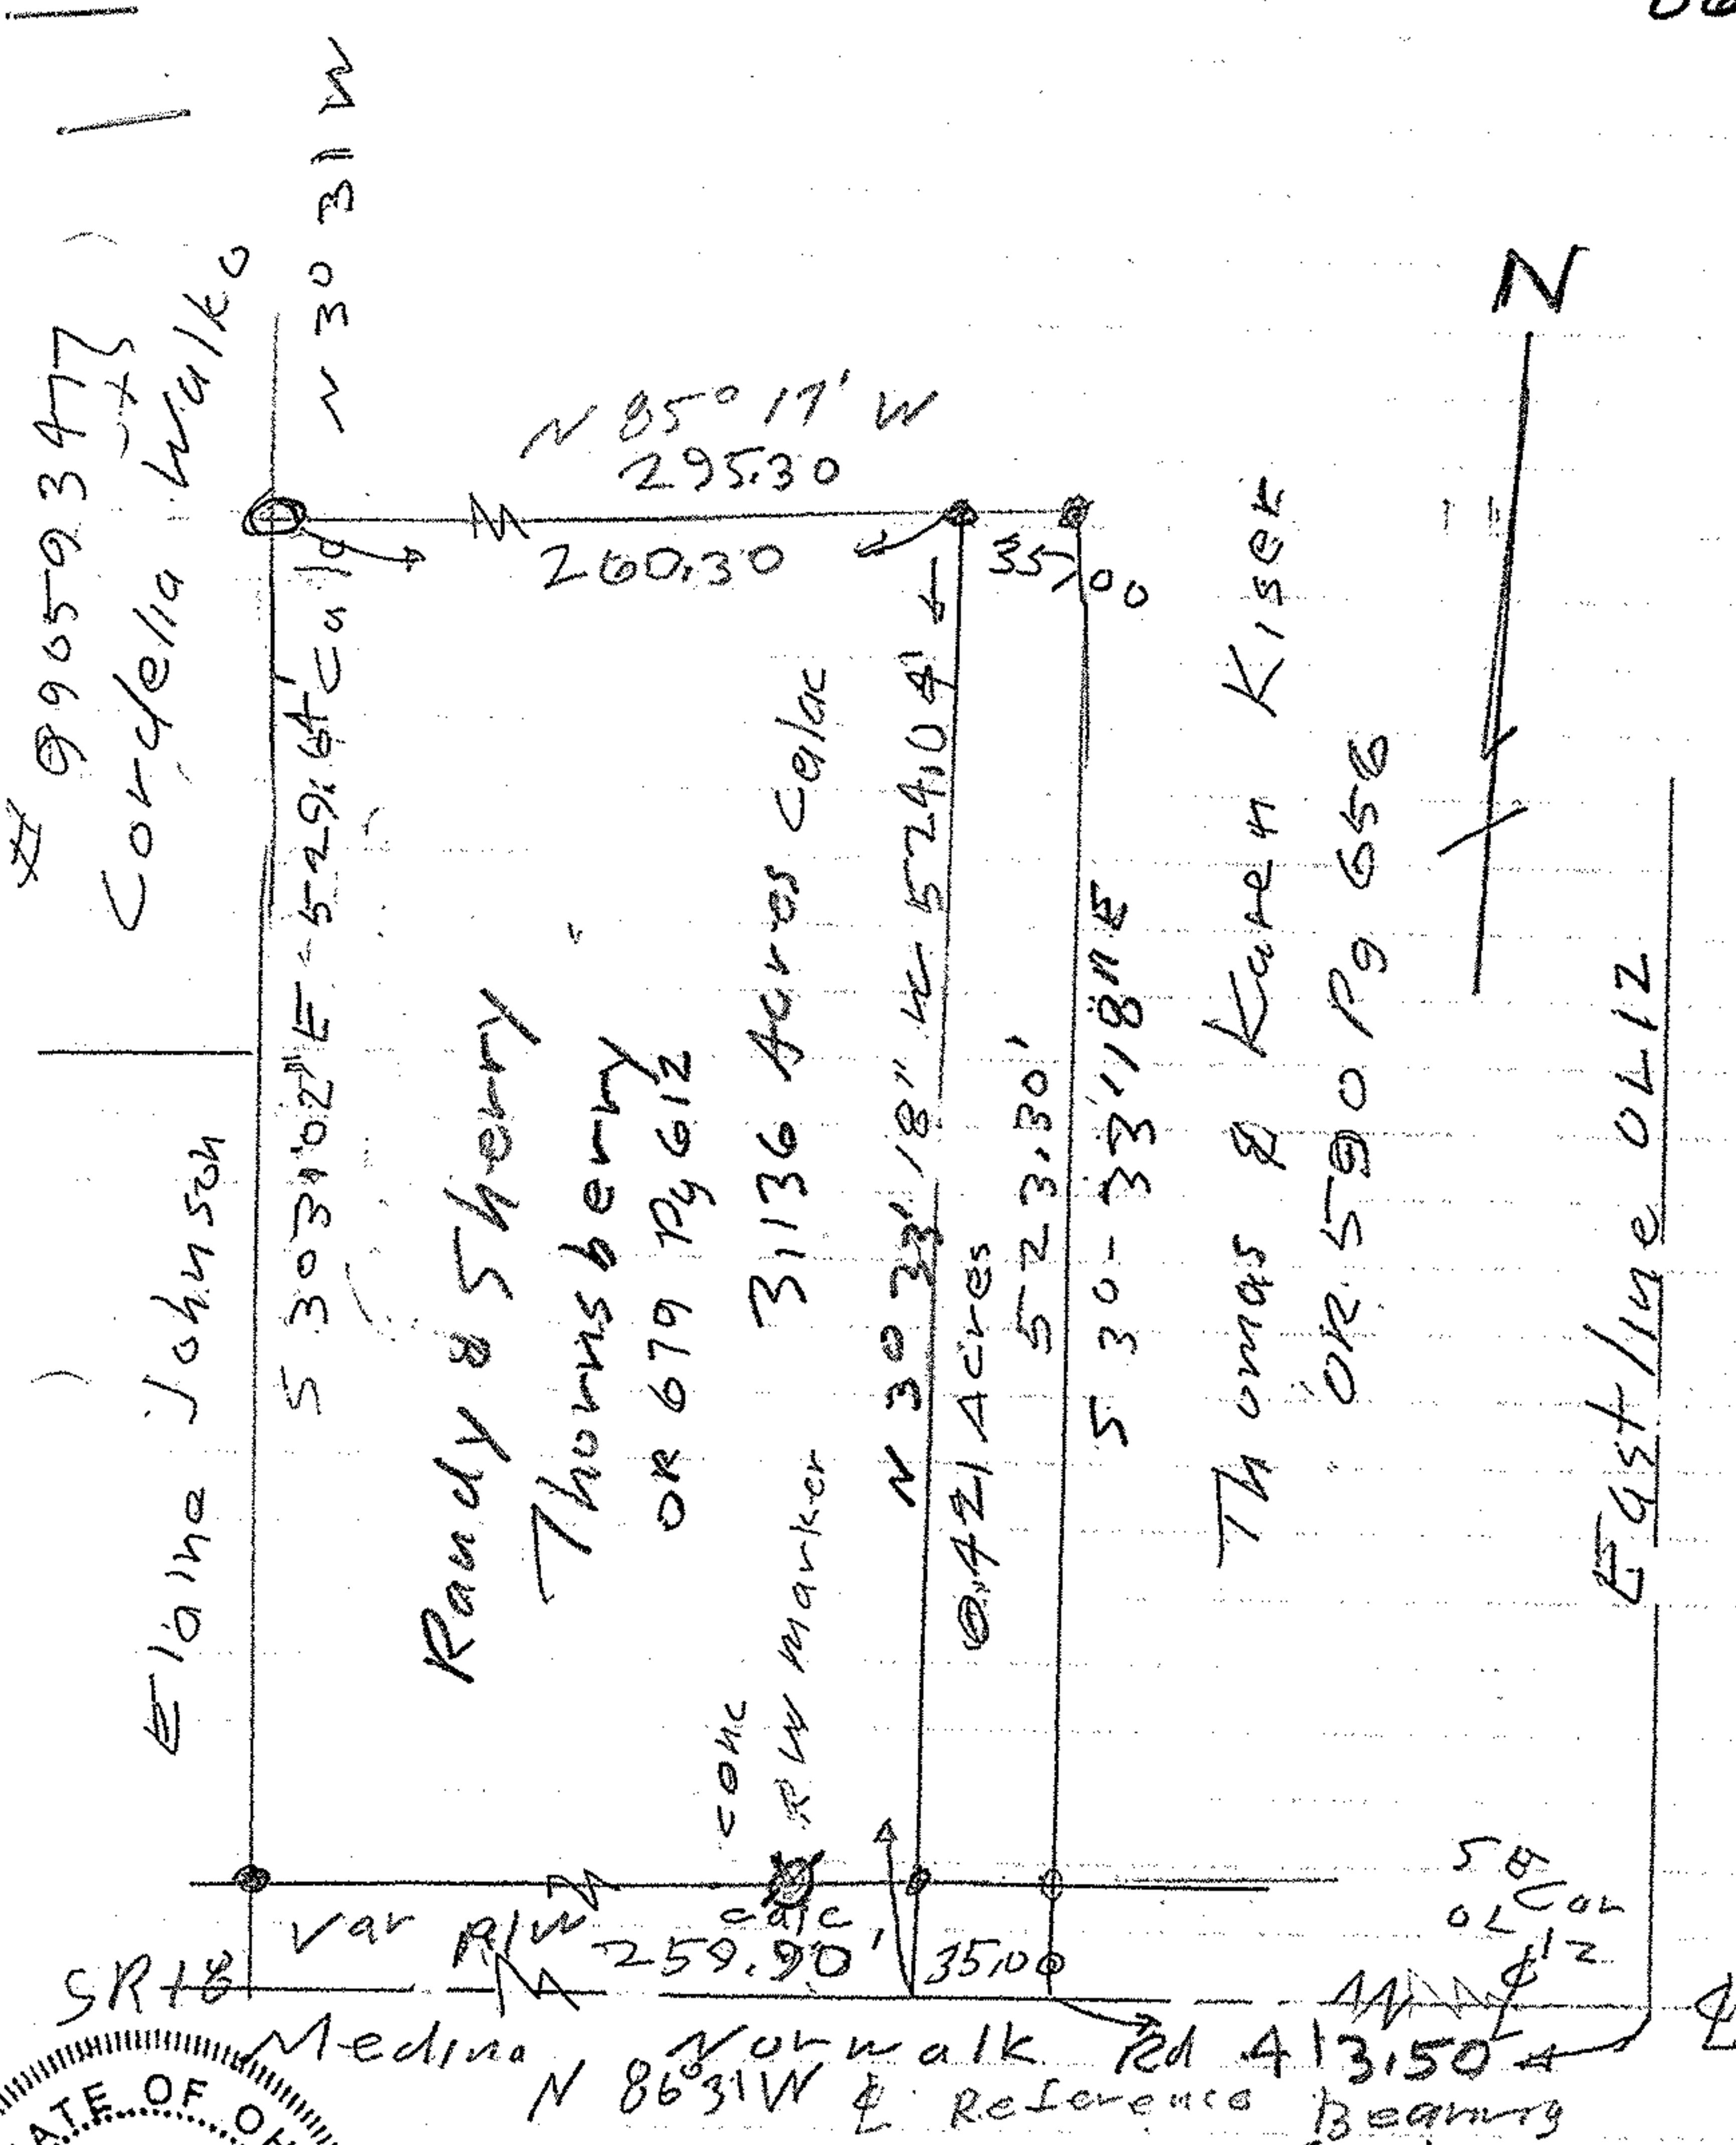 # 990593477
Cordelia Walko
N 3° 31 W
N 85° 17' W
295.30
260.30
35.00
N
S 3° 31' 02" E - 529.64' Calc
Elaine Johnson
Randy & Sherry
Thornsberry
OR 679 Pg 612
3.136 Acres Calac
N 3° 33' 18" W 524.04'
0.421 Acres
523.30'
S 3° - 33' 18" E
Thomas & Karen Kiser
OR. 590 Pg 656
East line OL 12
conc
R/W marker
SE Cor
OL 12
Var R/W
calc
259.90'
35.00
SR 18
Medina Norwalk Rd 413.50
N 86° 31' W ℄ Reference Bearing
STATE OF OH